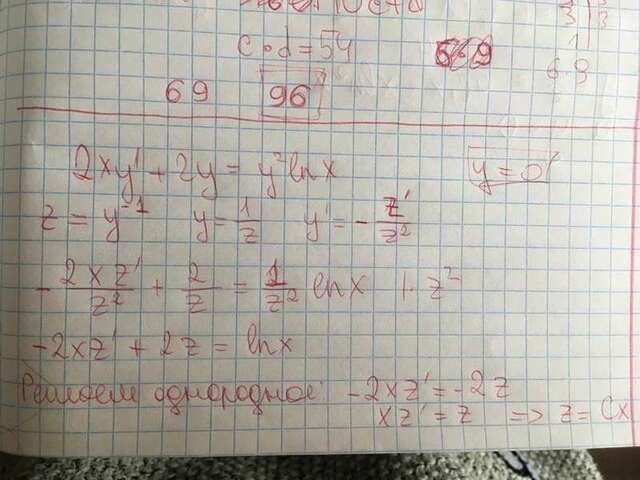 cod = 54
69
69 96
2xy' + 2y = y² ln x y = 0
z = y⁻¹ y = 1/z y' = - z'/z²
- 2xz'/z² + 2/z = 1/z² ln x |· z²
-2xz' + 2z = ln x
Решаем однородное: -2xz' = -2z
xz' = z => z = Cx